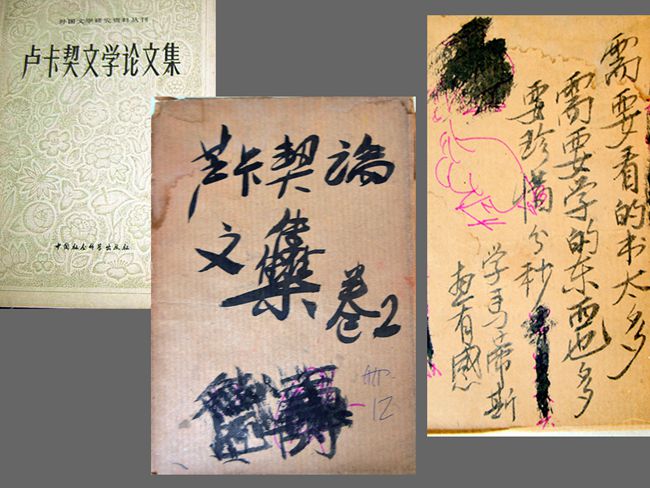 外国文学研究资料丛刊
卢卡契文学论文集
中国社会科学出版社
芦卡契論
文集
卷2
12
需要看的书太多
需要学的东西也多
要珍惜分秒
学马蒂斯
画有感